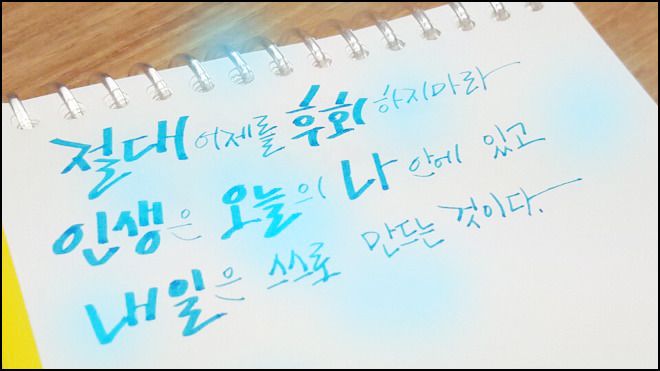 절대 어제를 후회 하지마라
인생은 오늘의 나 안에 있고
내일은 스스로 만드는 것이다.